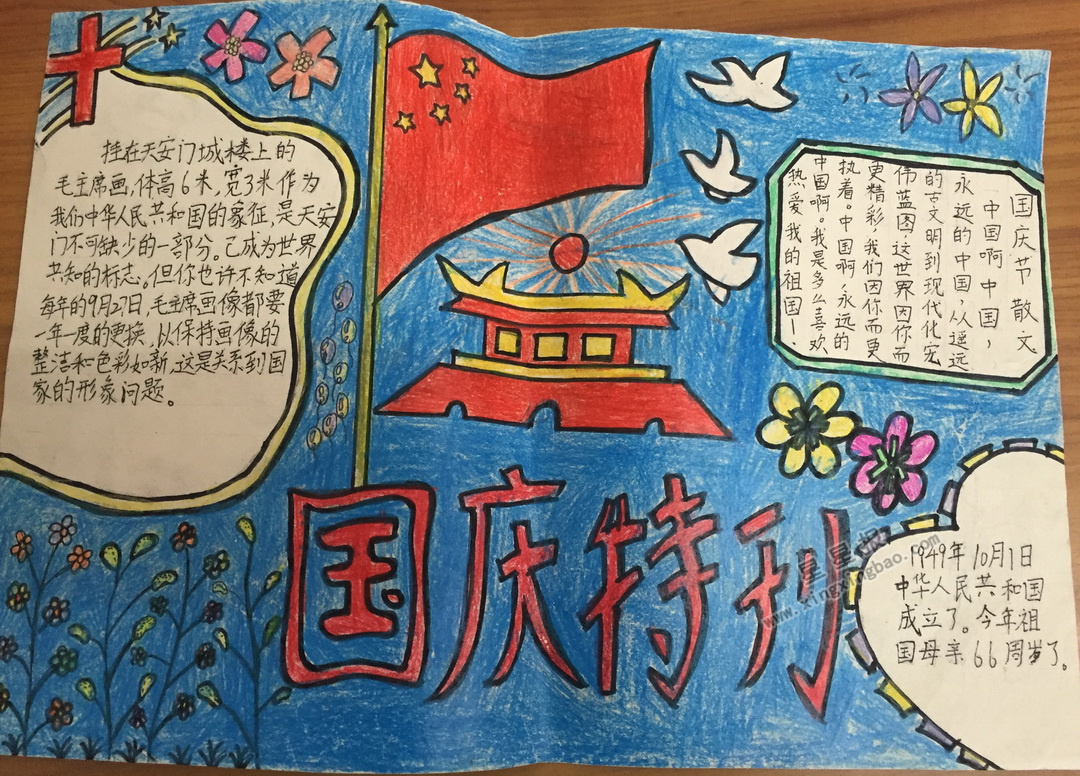 挂在天安门城楼上的
毛主席画,体高6米,宽3米作为
我们中华人民共和国的象征,是天安
门不可缺少的一部分。已成为世界
共知的标志。但你也许不知道
每年的9月27日,毛主席画像都要
一年一度的更换,以保持画像的
整洁和色彩如新,这是关系到国
家的形象问题。
国庆节散文
中国啊中国,
永远的中国,从遥远
的古文明到现代化宏
伟蓝图,这世界因你而
更精彩,我们因你而更
执着。中国啊,永远的
中国啊。我是多么喜欢
热爱我的祖国!
国庆特刊
1949年10月1日
中华人民共和国
成立了。今年祖
国母亲66周岁了。
星星报
www.xingxingbao.com